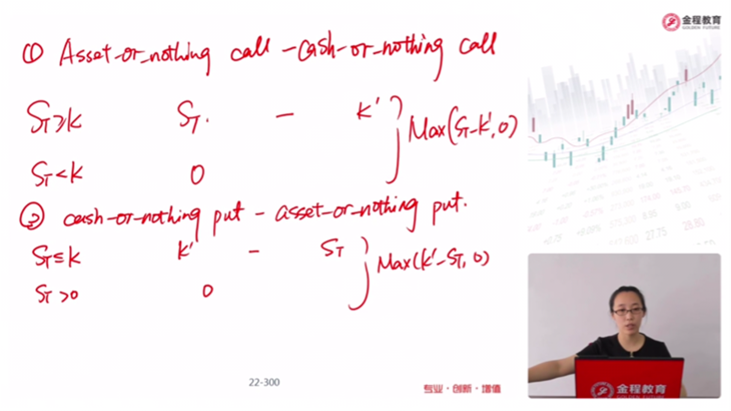 金程教育
GOLDEN FUTURE
① Asset-or-nothing call - cash-or-nothing call
S_T≥K S_T. - K' } Max(S_T-K', 0)
S_T<K 0
② cash-or-nothing put - asset-or-nothing put.
S_T≤K K' - S_T } Max(K'-S_T, 0)
S_T>0 0
27.75
28.80
22-300
专业·创新·增值
金程教育